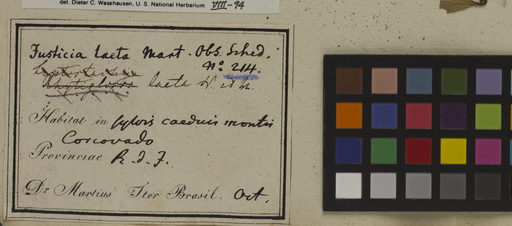 det. Dieter C. Wasshausen, U. S. National Herbarium VIII-94
Justicia laeta Mart. Obs. Sched.
No. 214.
Rhytiglossa laeta
Habitat in sylvis caeduis montis
Corcovado
Provinciae R. d. J.
Dr. Martius Iter Brasil. Oct.